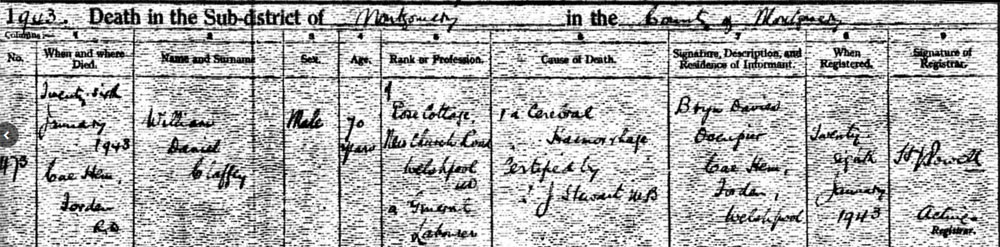 1943. Death in the Sub-dstrict of Montgomery in the County of Montgomery
Columns:— 1 2 3 4 5 6 7 8 9
No. When and where Died. Name and Surname Sex. Age. Rank or Profession. Cause of Death. Signature, Description, and Residence of Informant. When Registered. Signature of Registrar.
473
Twenty sixth
January
1943
Cae Hem,
Forden
R.D
William
Daniel
Claffey
Male
70
years
of
Rose Cottage,
New Church Road
Welshpool
UD
a General
Labourer
1a Cerebral
Haemorrhage
Certified by
J Stewart M.B
Bryn Davies
Occupier
Cae Hem,
Forden,
Welshpool
Twenty
eighth
January
1943
H J Powell
Acting
Registrar.